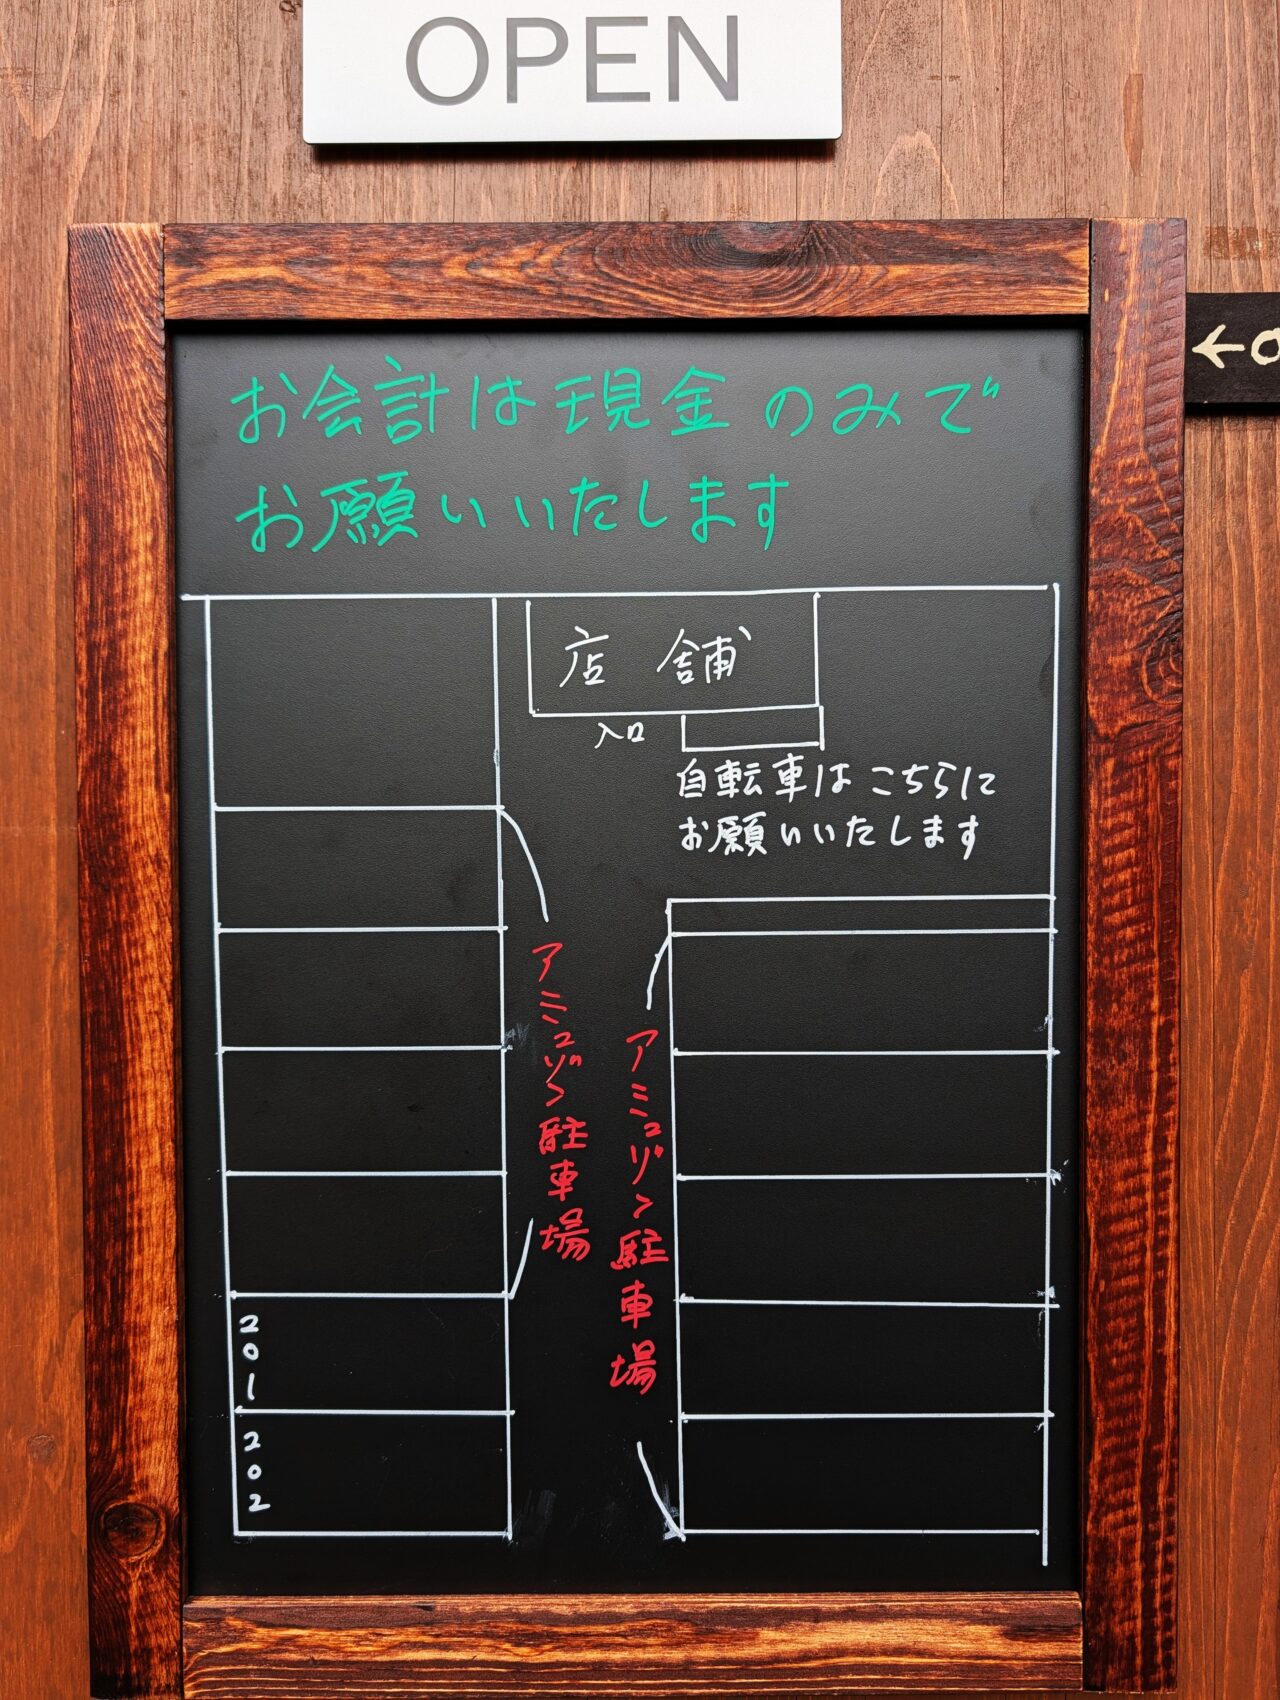 OPEN
お会計は現金のみで
お願いいたします
店舗
入口
自転車はこちらに
お願いいたします
アミュゾン駐車場
アミュゾン駐車場
201
202